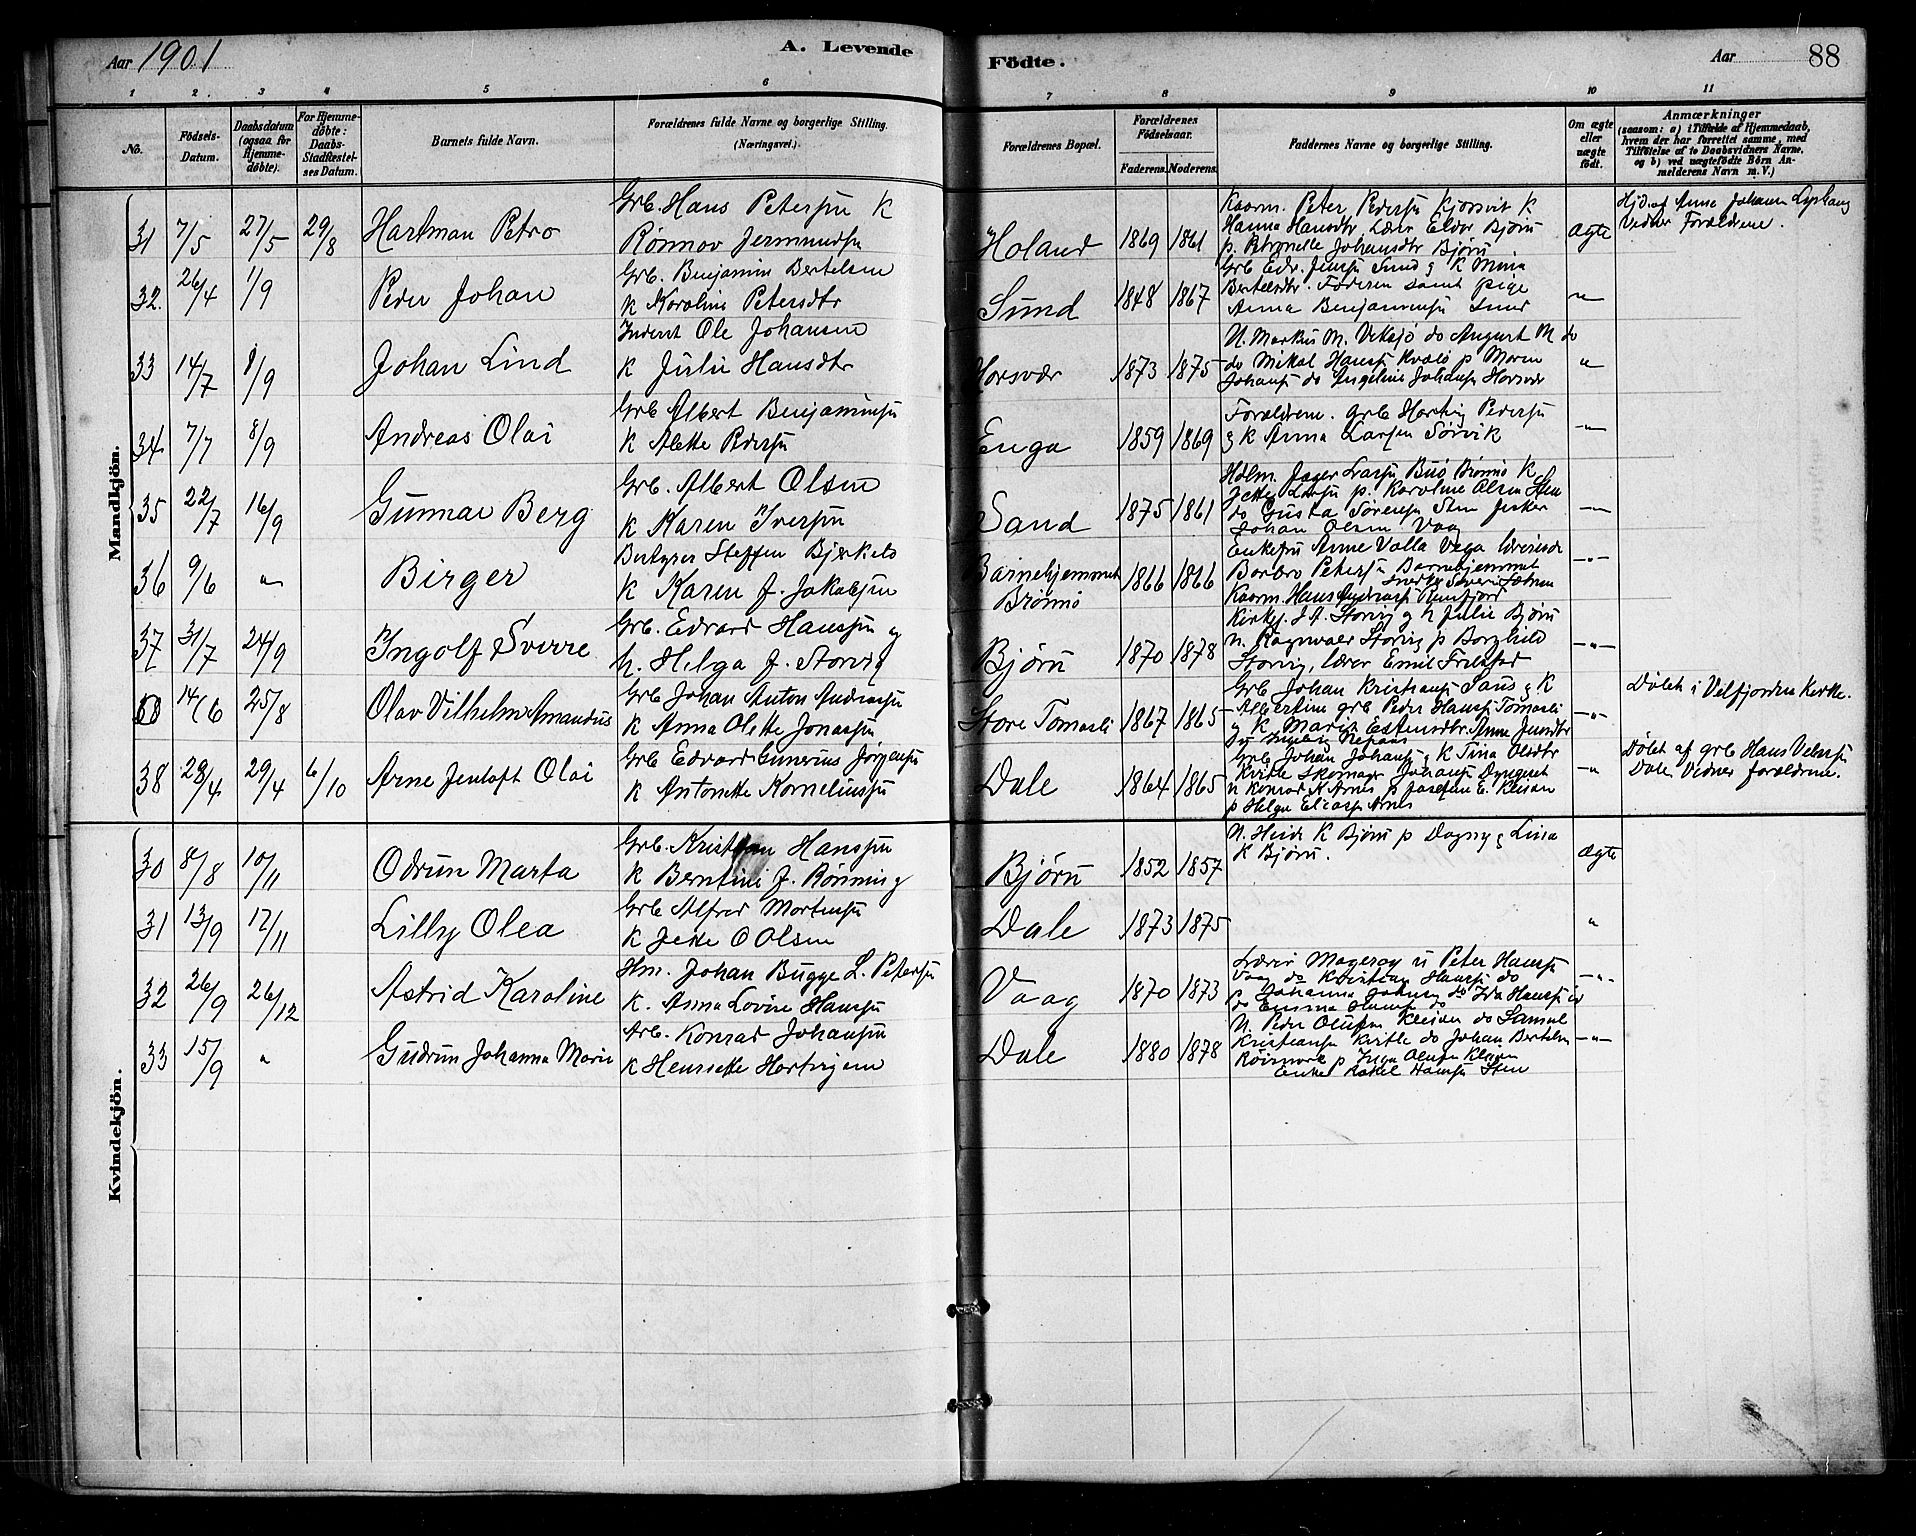 Aar 1901
A. Levende
Födte.
Aar 88
1 2 3 4 5 6 7 8 9 10 11
No.
Födsels-
Datum.
Daabsdatum
(ogsaa for
Hjemme-
döbte).
For Hjemme-
döbte:
Daabs-
Stadfæstel-
ses Datum.
Barnets fulde Navn.
Forældrenes fulde Navne og borgerlige Stilling.
(Næringsvei.)
Forældrenes Bopæl.
Forældrenes
Födselsaar.
Faderens. Moderens.
Faddernes Navne og borgerlige Stilling.
Om ægte
eller
uægte
födt.
Anmærkninger
(saasom: a) i Tilfælde af Hjemmedaab,
hvem der har forrettet samme, med
Tilföielse af to Daabsvidners Navne,
og b) ved uægtefödte Börn An-
melderens Navn m. V.)
Mandkjön.
31 7/5 27/5 29/8 Hartman Petro
Grb. Hans Petersen K
Rönnov Jermundsen
Holand 1869 1861
Kaarm. Peter Pedersen K
Hanna Hansdtr, Lærer Bjørn
p. Petronelle Johansdtr Bjørn
ægte
Hjd. af Anne Johansen
Vidner Forældrene.
32. 26/4 1/9 Peder Johan
Grb. Benjamin Bertelsen
K Karoline Petersdtr
Sund 1848 1867
Grb Edv. Jensen Sund & K Mina
Bertelsdtr. Faderen samt pige
Anna Benjaminsen Sund
"
33 14/7 8/9 Johan Lind
Inderst Ole Johansen
K Julie Hansdtr
Horsvær 1873 1875
U. Markus M. do August M do
do Mikal Hansen Kvalö p Maren
Johansen do Angeline Johansen Horsvær
"
34 7/7 8/9 Andreas Olai
Grb Albert Benjaminsen
K Alette Pedersen
Enga 1859 1869
Forældrene. Grb Harting Pedersen
& K Anna Larsen Sörvik
"
35 22/7 16/9 Gunnar Berg
Grb. Albert Olsen
K Karen Iversen
Sand 1875 1861
Larsen Brönnö K
Jette Larsen p. Karoline Olsen Sten
do Gusta Sörensen Sten
Johan Olsen Vaag
"
36 9/6 " Birger
Bestyrer Steffen Bjerkelo
K Karen J. Jakobsen
Barnehjemmet
Brönnö
1866 1866
Enkefru Anne Valla Vega
Barbro Petersen Barnehjemmet
Kaarm. Hans
"
37 31/7 24/9 Ingolf Sverre
Grb. Edvard Hansen og
h. Helga f. Storvig
Bjørn 1870 1878
Kirkes. Storvig og h Julie Bjørn
u. Ragnvald Storvig p Borghild
Storvig, lærer Emil
"
14/6 25/8 Olav Vilhelm Amandus
Grb Johan Anton Andreassen
K Anna Olette Jonassen
Store Tomasli 1867 1865
Grb Johan Kristiansen & K
Albertine grb Peder Hansen Tomasli
& K Marit Estensdtr Anne Jensdtr
"
Døbt i Velfjordens Kirke.
38 28/4 29/4 6/10 Arne Jentoft Olai
Grb Edvard Gunerius Jörgensen
K Antonette Korneliussen
Dale 1864 1865
Grb Johan Johansen & K Tina Olsdtr
Kvitle Skomager Johansen
u Konrad K Arnes p Josefine E. Kleiven
p Helga Eliasen Arnes
"
Døbt af grb Hans
Dale Vidner forældrene.
Kvindekjön.
30 8/8 10/11 Odrun Marta
Grb. Kristian Hansen
K Berntine f. Rönning
Bjørn 1852 1857
U. Heide K Bjørn p Dagny & Lina
K Bjørn.
ægte
31 13/9 17/11 Lilly Olea
Grb Alfred Mortensen
K Jette O Olsen
Dale 1873 1875
"
32 26/9 26/12 Astrid Karoline
Hm. Johan Bugge L. Petersen
K. Anna Lovise Hansen
Vaag 1870 1873
Lærer Mageröy U Peter Hansen
Vaag do Kristian Hansen do
Johanna do Ida Hansen
do Emma Hansen do
"
33 15/9 " Gudrun Johanna Marie
Arb. Konrad Johansen
K Henriette Hartvigsen
Dale 1880 1878
U. Peder Olufsen Kleiven do Samuel
Kristiansen Kvitle do Johan Bertelsen
Röimark p Inga Olufsen Kleiven
Enke Rakel Hansen Sten
"